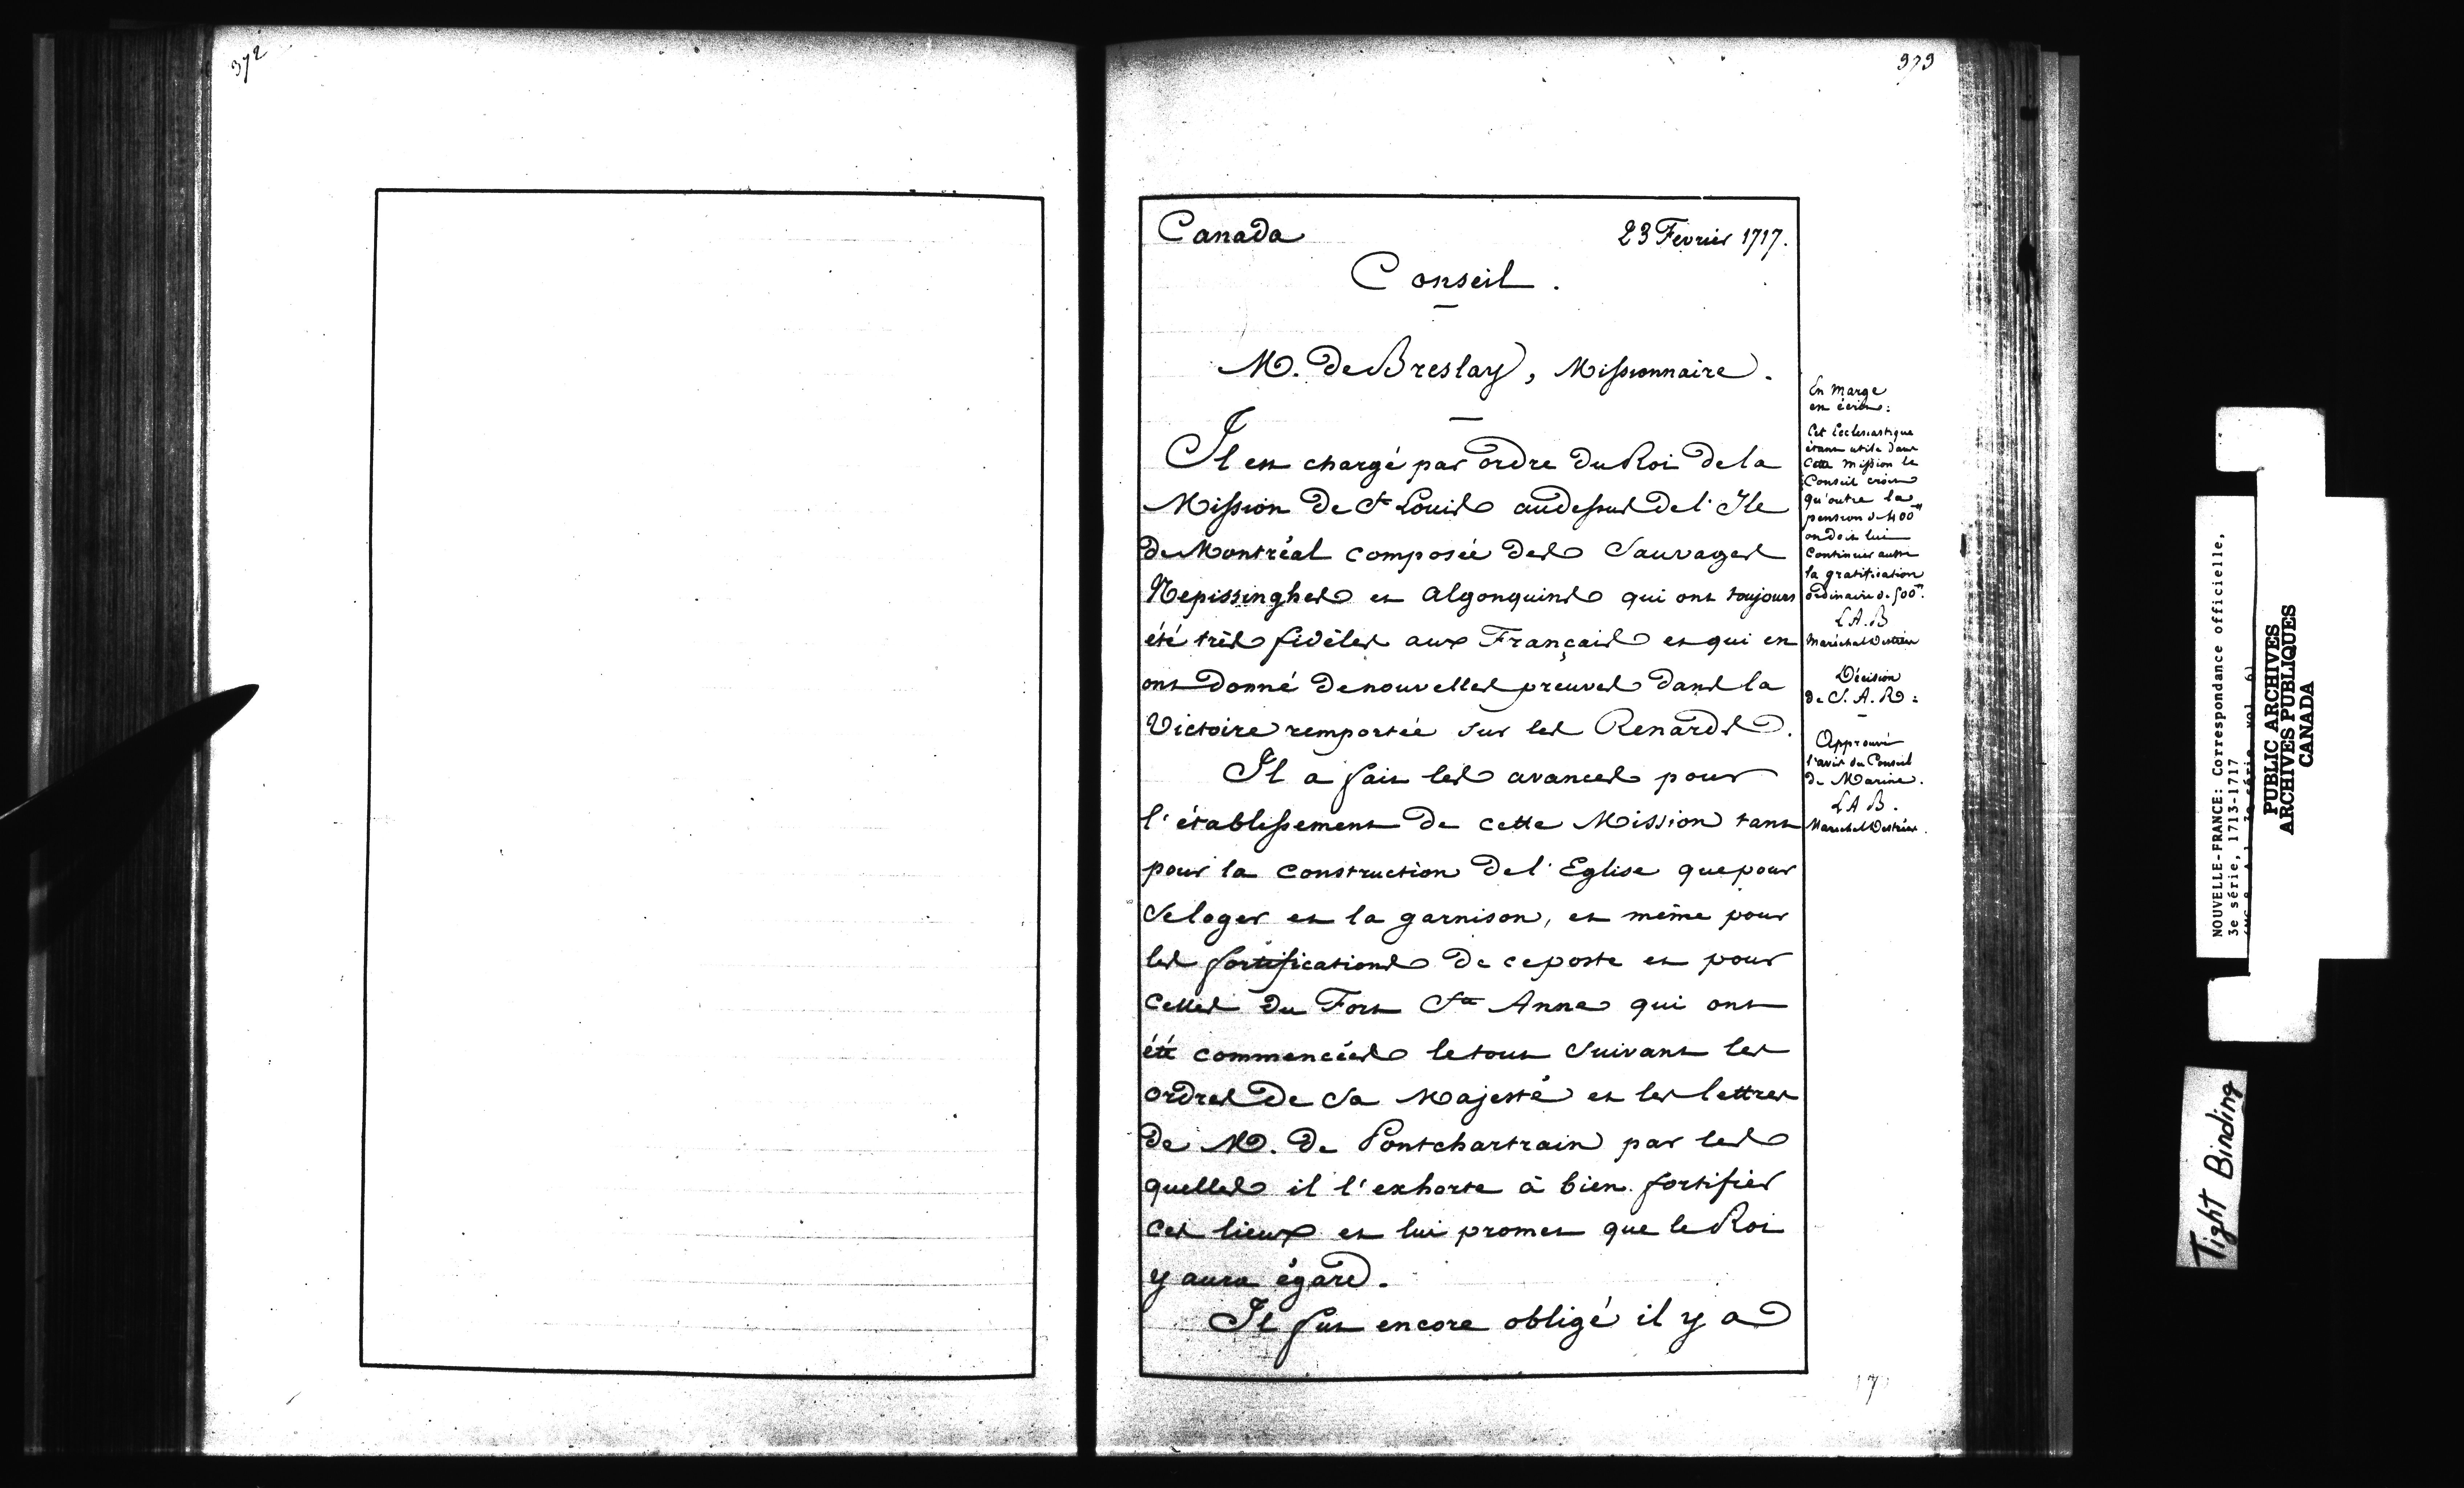 372
373
Canada 23 Fevrier 1717.
Conseil.
M. de Breslay, Missionnaire.
Il est chargé par ordre du Roi de la
Mission de St Louis audessus de l'Ile
de Montréal composée des Sauvages
Nepissinghes et Algonquins qui ont toujours
été très fidèles aux Français et qui en
ont donné de nouvelles preuves dans la
Victoire remportée sur les Renards.
Il a fait les avances pour
l'établissement de cette Mission tant
pour la construction de l'Eglise que pour
se loger et la garnison, et même pour
les fortifications de ce poste et pour
celles du Fort Ste Anne qui ont
été commencées le tout suivant les
ordres de Sa Majesté et les lettres
de M. de Pontchartrain par les
quelles il l'exhorte à bien fortifier
ces lieux et lui promet que le Roi
y aura égard.
Il fut encore obligé il y a
En marge
est écrit:
Cet Ecclesiastique
étant utile dans
Cette Mission le
Conseil croit
qu'outre la
pension de 400"
on doit lui
continuer aussi
la gratification
ordinaire de 500".
L.A.B
Maréchal Destrées
Décision
de S. A. R:
Approuvé
l'avis du Conseil
de Marine.
L A B.
Marechal Destrées.
NOUVELLE-FRANCE: Correspondance officielle,
3e série, 1713-1717
PUBLIC ARCHIVES
ARCHIVES PUBLIQUES
CANADA
Tight Binding